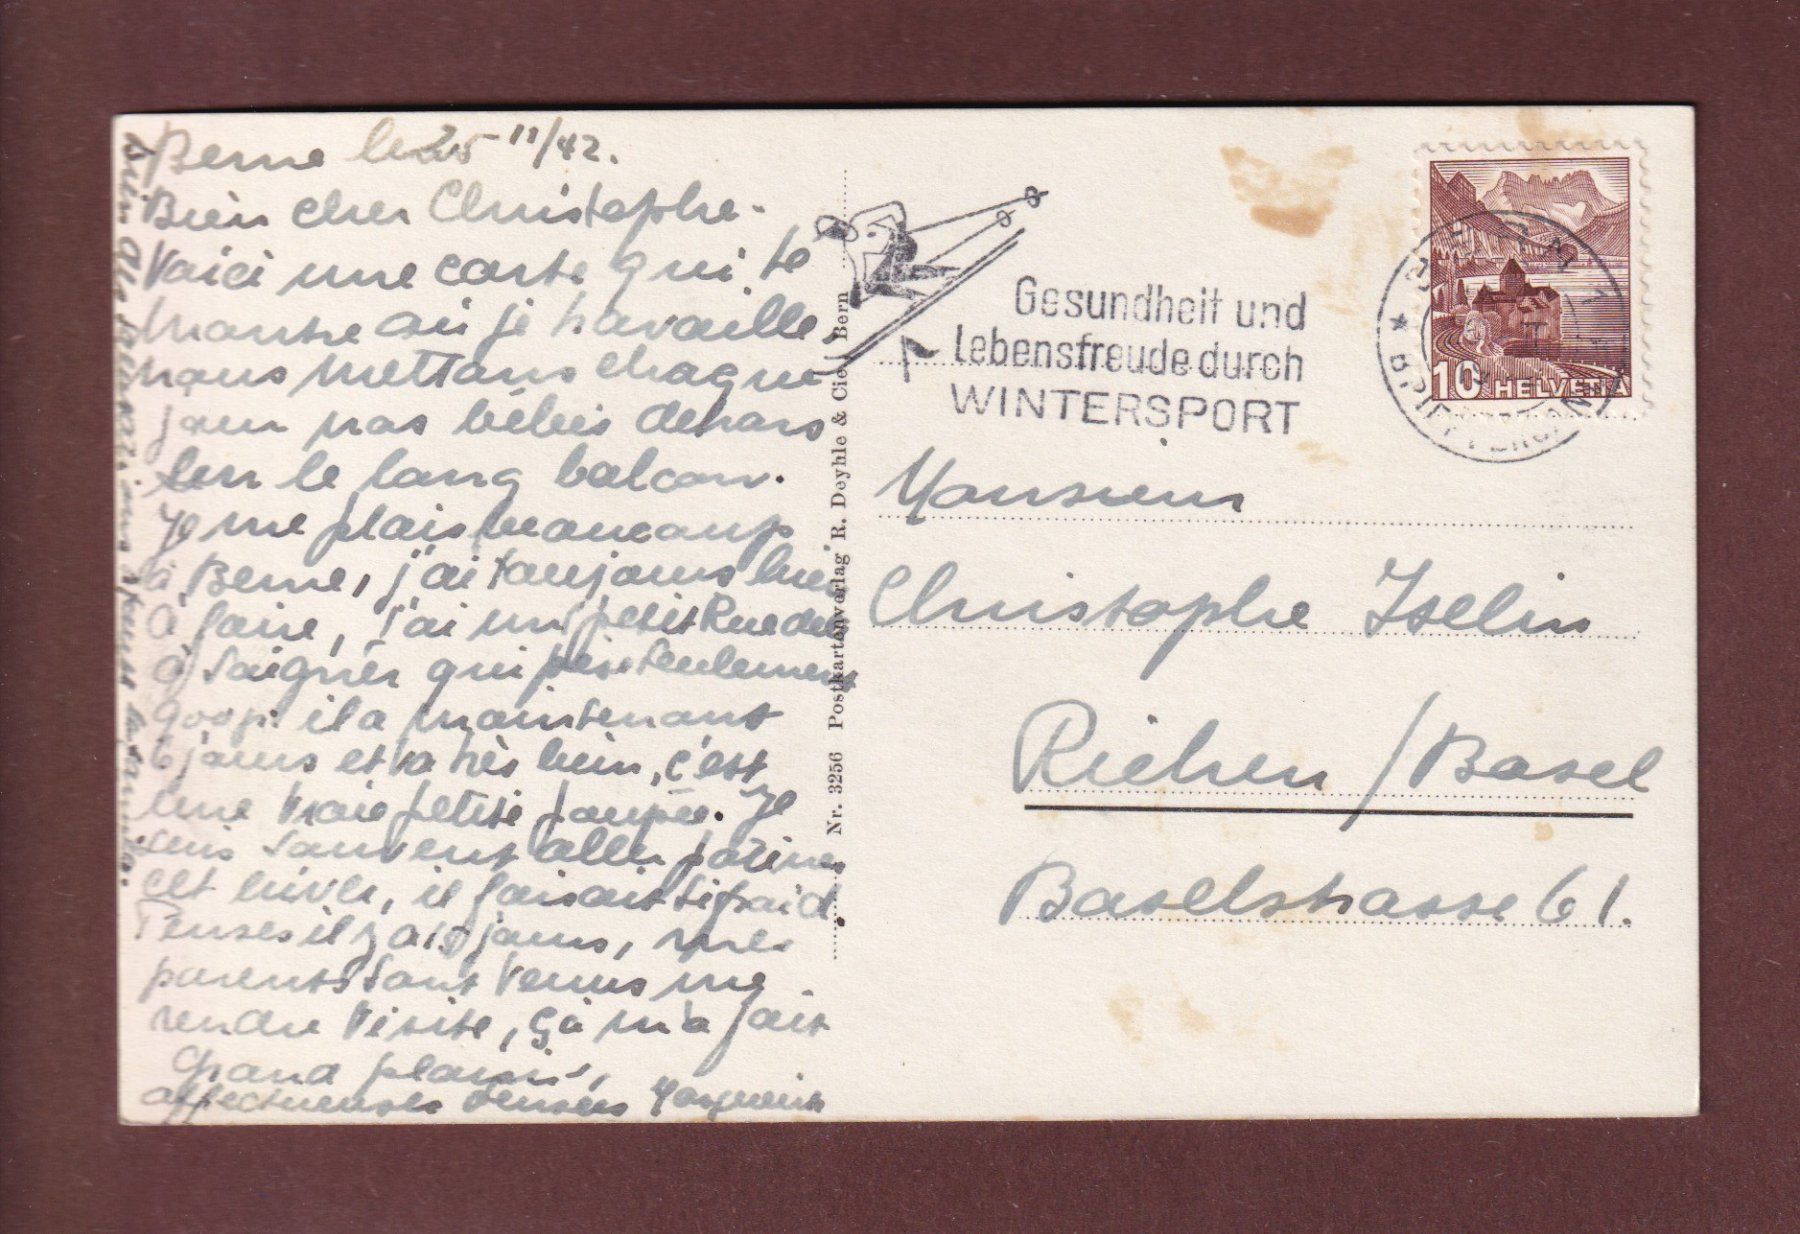 Berne le 25 11/42.
Bien cher Christophe.
Voici une carte qui te
montre où je travaille,
nous mettons chaque
jour nos bébés dehors
sur le long balcon.
Je me plais beaucoup
à Berne, j'ai toujours bien
à faire, j'ai un petit
à soigner qui pèse seulement
900gr. il a maintenant
6 jours et va très bien, c'est
une vraie petite poupée. Je
suis souvent aller patiner
cet hiver, il faisait si froid.
Penses il y a 15 jours, mes
parents sont venus me
rendre visite, ça m'a fait
grand plaisir,
affectueuses pensées
Nr. 3256 Postkartenverlag R. Deyhle & Cie., Bern
Gesundheit und
Lebensfreude durch
WINTERSPORT
10 HELVETIA
BRIEFVERSAND
Monsieur
Christophe Iselin
Riehen / Basel
Baselstrasse 61.